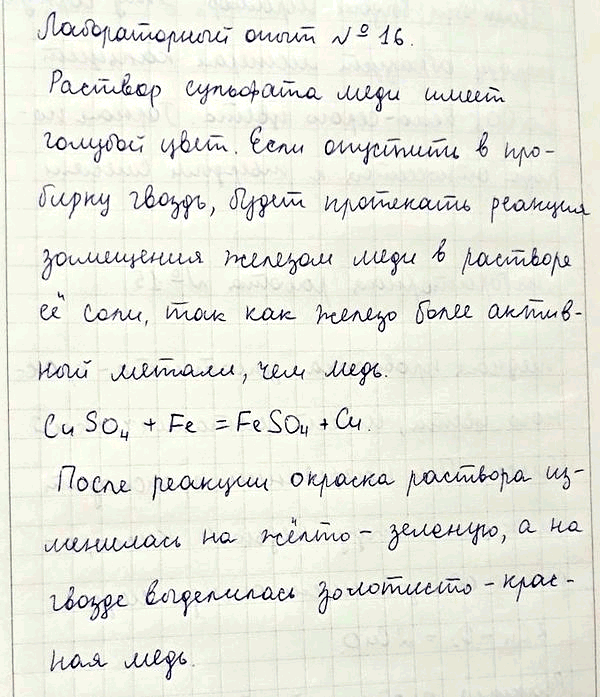 Лабораторный опыт №16.
Раствор сульфата меди имеет
голубой цвет. Если опустить в про-
бирку гвоздь, будет протекать реакция
замещения железом меди в растворе
её соли, так как железо более актив-
ный металл, чем медь.
CuSO₄ + Fe = FeSO₄ + Cu.
После реакции окраска раствора из-
менилась на жёлто-зеленую, а на
гвозде выделилась золотисто-крас-
ная медь.